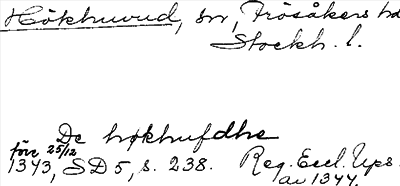 Hökhuvud, sn, Frösåkers hd
Stockh. l.
De høkhufdhe
före 25/12
1343, SD 5, s. 238. Reg. Eccl. Ups.
av 1344.